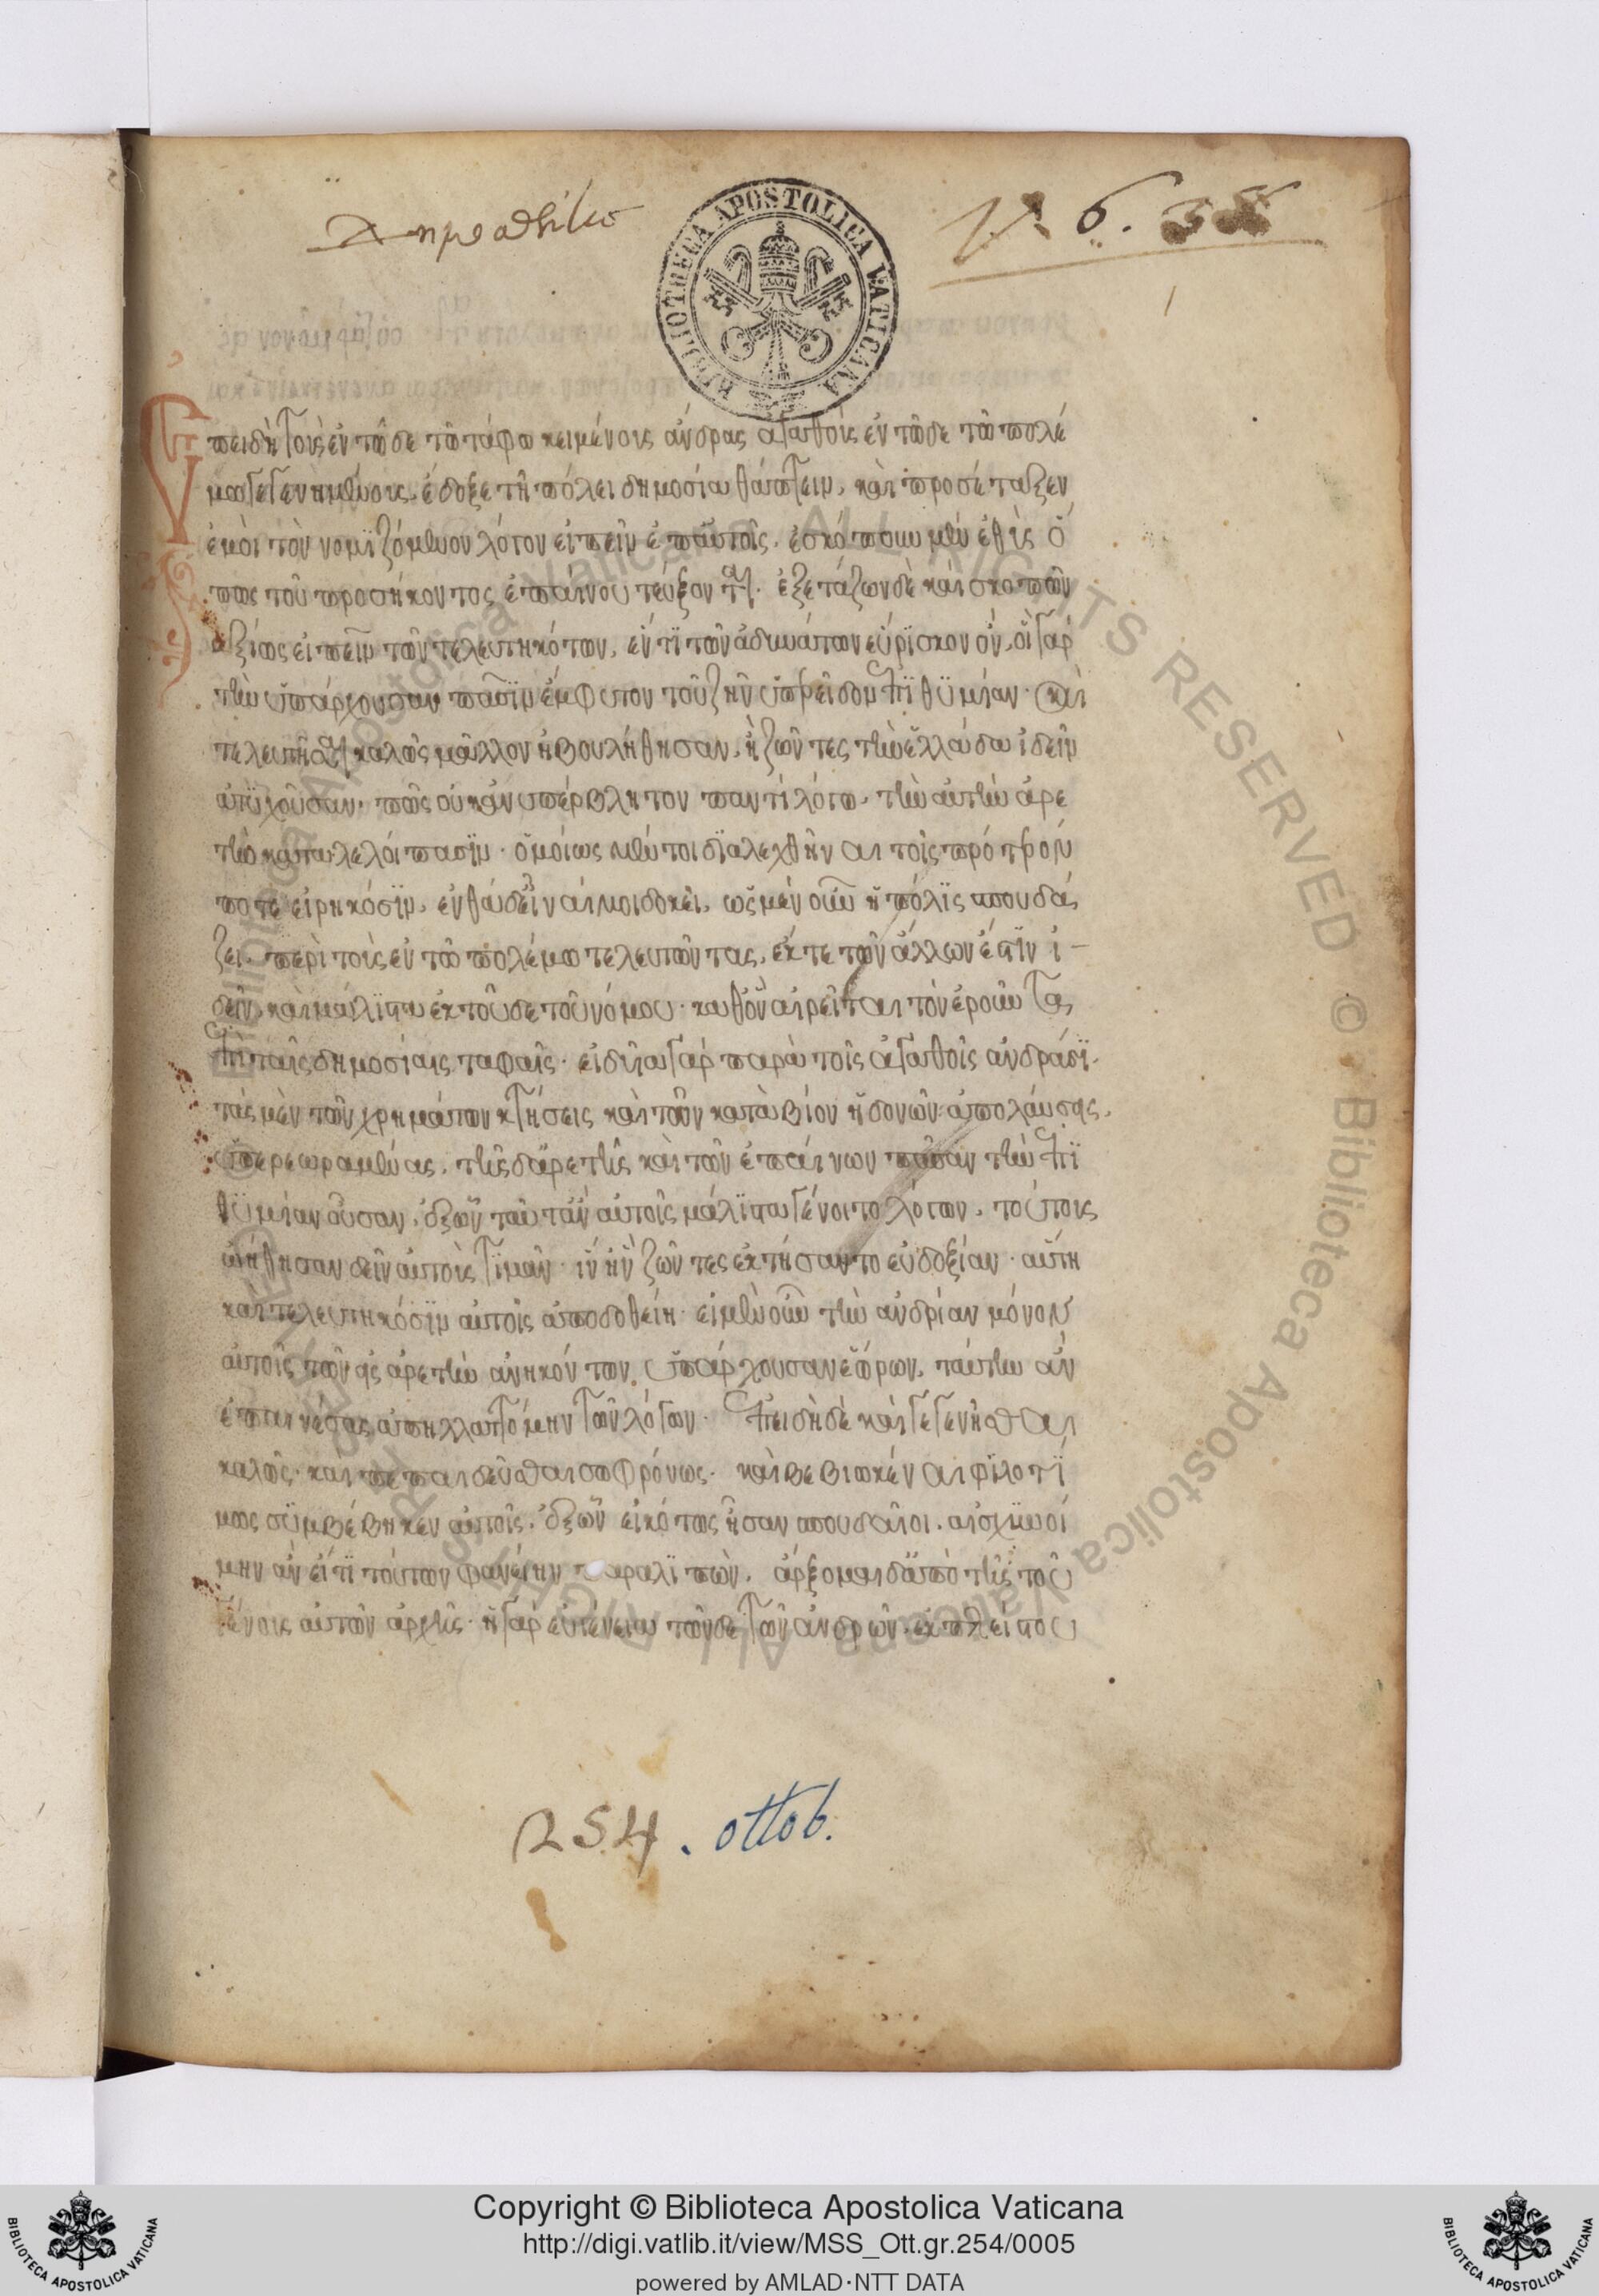 Δημοσθένους
N.° 6. 35
1
BIBLIOTHECA APOSTOLICA VATICANA
Ἐπειδὴ τοὺς ἐν τῶδε τῶ τάφω κειμένους ἄνδρας ἀγαθοὺς ἐν τῶδε τῶ πολέ
μω γεγενημένους, ἔδοξε τῆ πόλει δημοσία θάπτειν, καὶ προσέταξεν
ἐμοὶ τὸν νομϊζόμενον λόγον εἰπεῖν ἐπ' αὐτοῖς, ἐσκόπουν μὲν εὐθὺς ὅ
πως τοῦ προσήκοντος ἐπαίνου τεύξονται. ἐξετάζων δὲ καὶ σκοπῶν
ἀξίως εἰπεῖν τῶν τετελευτηκότων, ἕν τϊ τῶν ἀδυνάτων εὕρϊσκον ὄν, οἳ γὰρ
τὴν ὑπάρχουσαν πᾶσϊν ἔμφυτον τοῦ ζῆν ὑπερεῖδον ἐπϊθϋμίαν· καὶ
τελευτῆσαι καλῶς μᾶλλον ἠβουλήθησαν, ἢ ζῶντες τὴν ἑλλάδα ἰδεῖν
ἀτϋχοῦσαν, πῶς οὐκ ἀνυπέρβλητον παντὶ λόγω, τὴν αὐτῶν ἀρε
τὴν καταλελοίπασϊν· ὁμοίως μέντοι δϊαλεχθῆναι τοῖς πρότερόν
ποτε εἰρηκόσϊν, ἐνθάδ' εἶναί μοι δοκεῖ, ὡς μὲν οὖν ἡ πόλϊς σπουδά
ζει, περὶ τοὺς ἐν τῶ πολέμω τελευτῶντας, ἔκ τε τῶν ἄλλων ἔστϊν ἰ
δεῖν, καὶ μάλϊστα ἐκ τοῦδε τοῦ νόμου· καθ' ὃν αἱρεῖται τὸν ἐροῦντα
ἐπὶ ταῖς δημοσίαις ταφαῖς· εἰδυῖα γὰρ παρὰ τοῖς ἀγαθοῖς ἀνδράσϊ·
τὰς μὲν τῶν χρημάτων κτήσεις καὶ τῶν κατὰ βίον ἡδονῶν ἀπολαύσεις,
ὑπερεωραμένας, τῆς δ' ἀρετῆς καὶ τῶν ἐπαίνων πᾶσαν τὴν ἐπϊ
θϋμίαν οὖσαν, ἐξ ὧν ταῦτ' ἂν αὐτοῖς μάλϊστα γένοιτο λόγων, τούτοις
ὠήθησαν δεῖν αὐτοὺς τϊμᾶν· ἵν' ἣν ζῶντες ἐκτήσαντο εὐδοξίαν· αὕτη
καὶ τετελευτηκόσϊν αὐτοῖς ἀποδοθείη· εἰ μὲν οὖν τὴν ἀνδρίαν μόνον
αὐτοῖς τῶν εἰς ἀρετὴν ἀνηκόντων, ὑπάρχουσαν ἑώρων, ταύτην ἂν
ἐπαινέσας ἀπηλλαττόμην τῶν λόγων· Ἐπειδὴ δὲ καὶ γεγενῆσθαι
καλῶς· καὶ πεπαιδεῦσθαι σωφρόνως· καὶ βεβιωκέναι φϊλοτϊ
μως σϋμβέβηκεν αὐτοῖς, ἐξ ὧν εἰκότως ἦσαν σπουδαῖοι, αἰσχυνοί
μην ἂν εἴ τϊ τούτων φανείην παραλϊπών, ἄρξομαι δ' ἀπὸ τῆς τοῦ
γένους αὐτῶν ἀρχῆς· ἡ γὰρ εὐγένεια τῶνδε τῶν ἀνδρῶν· ἐκ πλείστου
254. ottob.
Copyright © Biblioteca Apostolica Vaticana
http://digi.vatlib.it/view/MSS_Ott.gr.254/0005
powered by AMLAD·NTT DATA
BIBLIOTECA APOSTOLICA VATICANA
BIBLIOTECA APOSTOLICA VATICANA